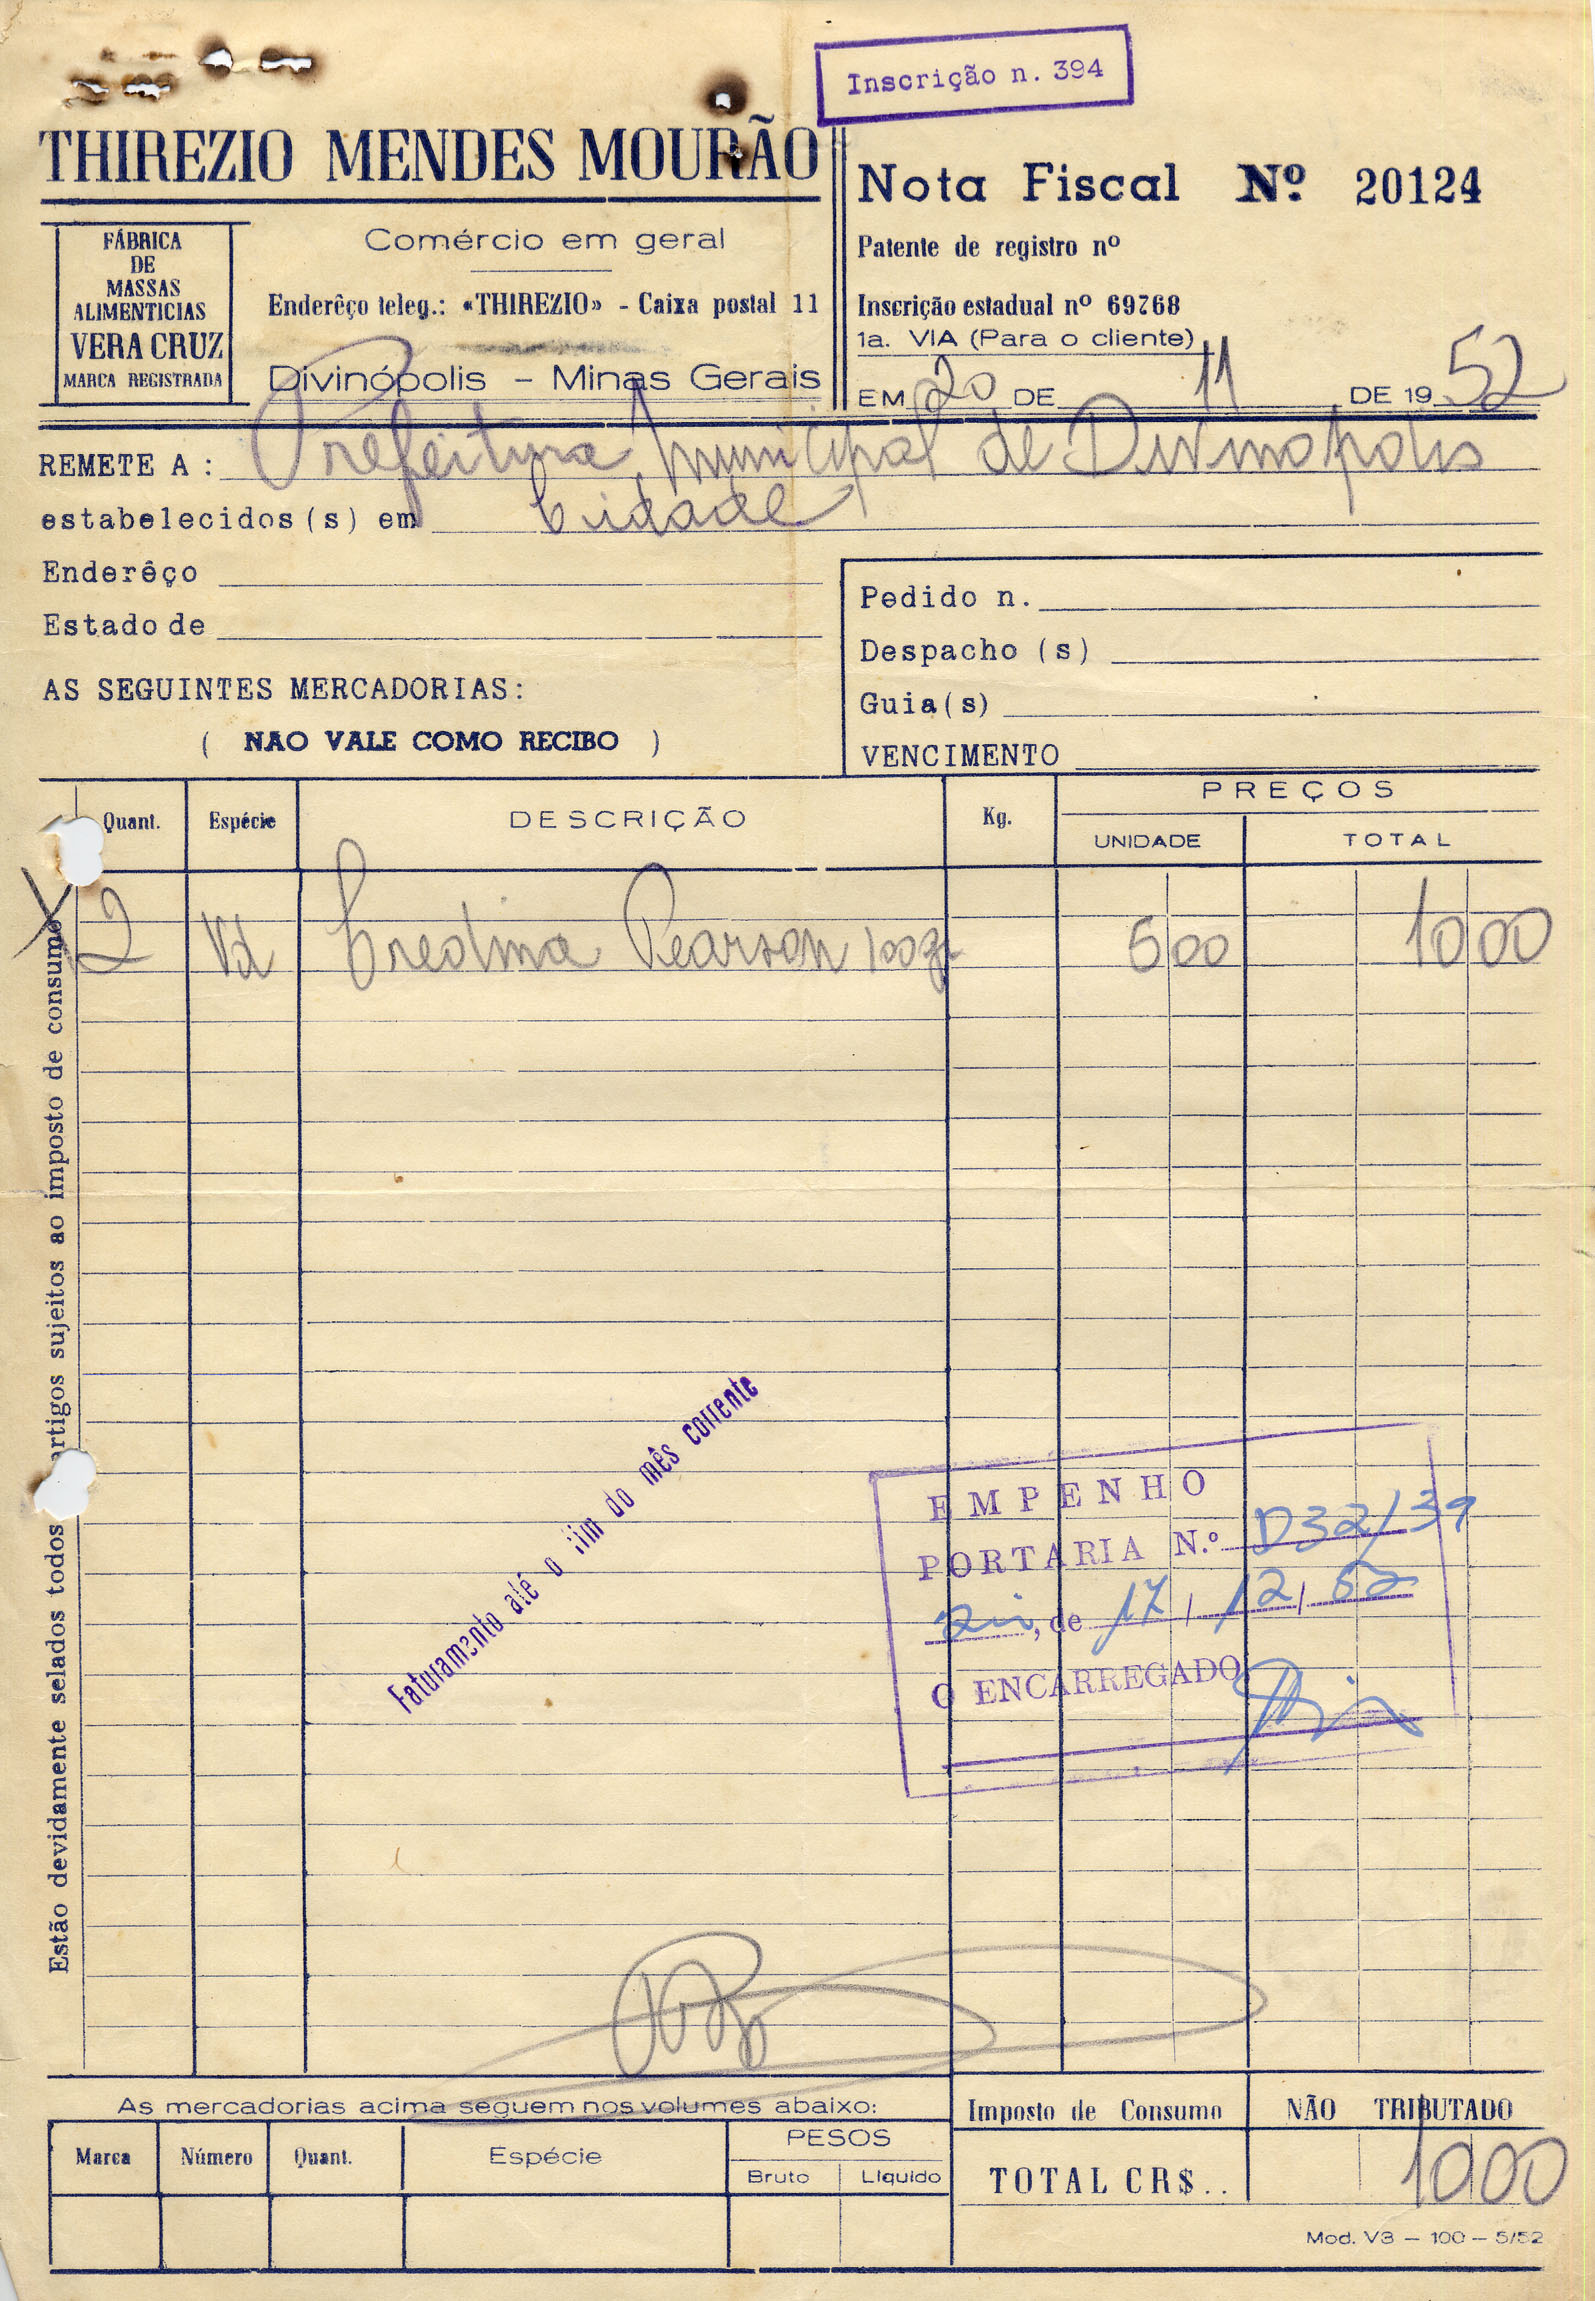 Inscrição n. 394
THIREZIO MENDES MOURÃO
Nota Fiscal Nº. 20124
FÁBRICA
DE
MASSAS
ALIMENTICIAS
VERA CRUZ
MARCA REGISTRADA
Comércio em geral
Enderêço teleg.: «THIREZIO» - Caixa postal 11
Divinópolis - Minas Gerais
Patente de registro nº
Inscrição estadual nº 69768
1a. VIA (Para o cliente)
EM 20 DE 11 DE 1952
REMETE A: Prefeitura Municipal de Divinopolis
estabelecidos(s) em Cidade
Enderêço
Estado de
AS SEGUINTES MERCADORIAS:
( NAO VALE COMO RECIBO )
Pedido n.
Despacho (s)
Guia(s)
VENCIMENTO
Quant. Espécie DESCRIÇÃO Kg. PREÇOS
UNIDADE TOTAL
2 Vd Creolina Pearson 100gr 5 00 10 00
Estão devidamente selados todos artigos sujeitos ao imposto de consumo
Faturamento até o fim do mês corrente
EMPENHO
PORTARIA N.º D32/39
, de 17/12/52
O ENCARREGADO
As mercadorias acima seguem nos volumes abaixo:
Marca Número Quant. Espécie PESOS
Bruto Líquido
Imposto de Consumo NÃO TRIBUTADO
TOTAL CR$.. 10 00
Mod. V3 - 100 - 5/52